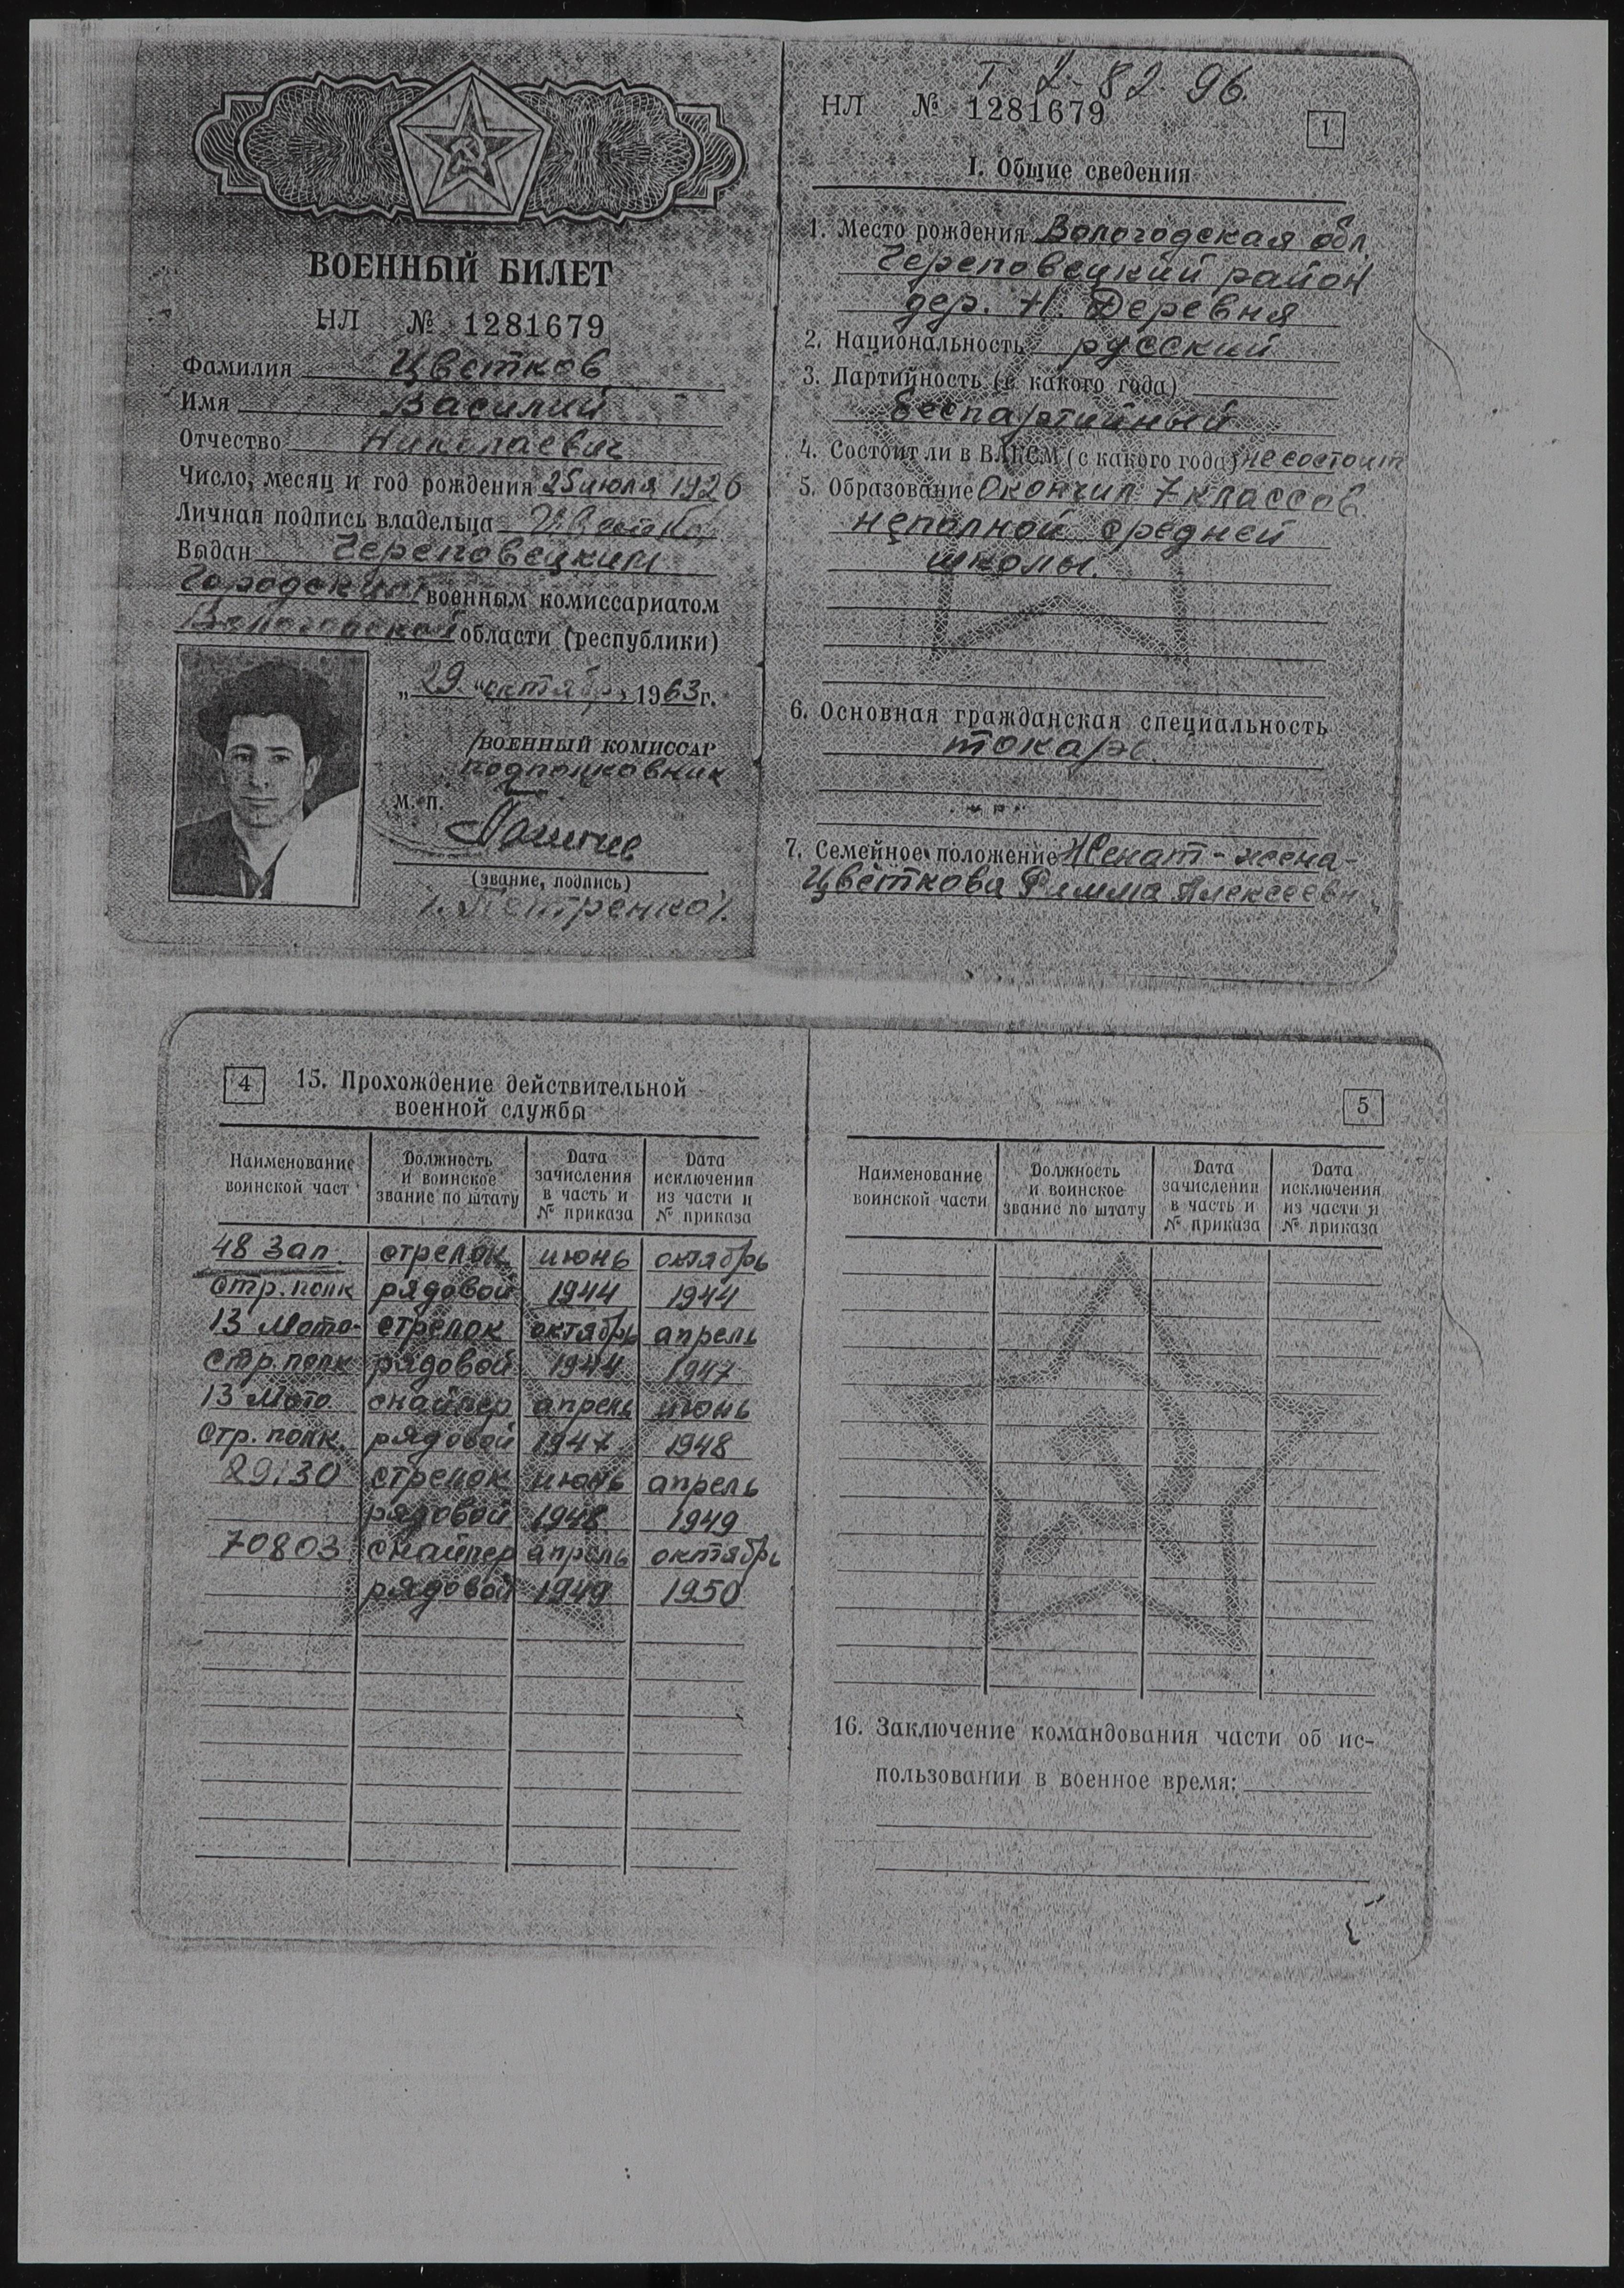 ВОЕННЫЙ БИЛЕТ
НЛ № 1281679
Фамилия Цветков
Имя Василий
Отчество Николаевич
Число, месяц и год рождения 25 июля 1926
Личная подпись владельца
Выдан Череповецким
Городским военным комиссариатом
Вологодской области (республики)
„29" октября 1963 г.
ВОЕННЫЙ КОМИССАР
подполковник
М. П.
(звание, подпись)
/. Петренко /.
Т 2-82-96.
НЛ № 1281679
1
I. Общие сведения
1. Место рождения Вологодская обл.
Череповецкий район
дер. Н. Деревня
2. Национальность русский
3. Партийность (с какого года)
беспартийный
4. Состоит ли в ВЛКСМ (с какого года) не состоит
5. Образование Окончил 7 классов
неполной средней
школы.
6. Основная гражданская специальность
токарь.
7. Семейное положение Женат - жена -
Цветкова Римма Алексеевн
4
15. Прохождение действительной
военной службы
Наименование воинской част | Должность и воинское звание по штату | Дата зачисления в часть и № приказа | Дата исключения из части и № приказа
48 Зап. стрелок июнь октябрь
стр. полк рядовой 1944 1944
13 Мото- стрелок октябрь апрель
стр. полк рядовой 1944 1947
13 Мото снайпер апрель июнь
Стр. полк. рядовой 1947 1948
стрелок июнь апрель
рядовой 1948 1949
70803 снайпер апрель октябрь
рядовой 1949 1950
5
Наименование воинской части | Должность и воинское звание по штату | Дата зачисления в часть и № приказа | Дата исключения из части и № приказа
16. Заключение командования части об ис-
пользовании в военное время: